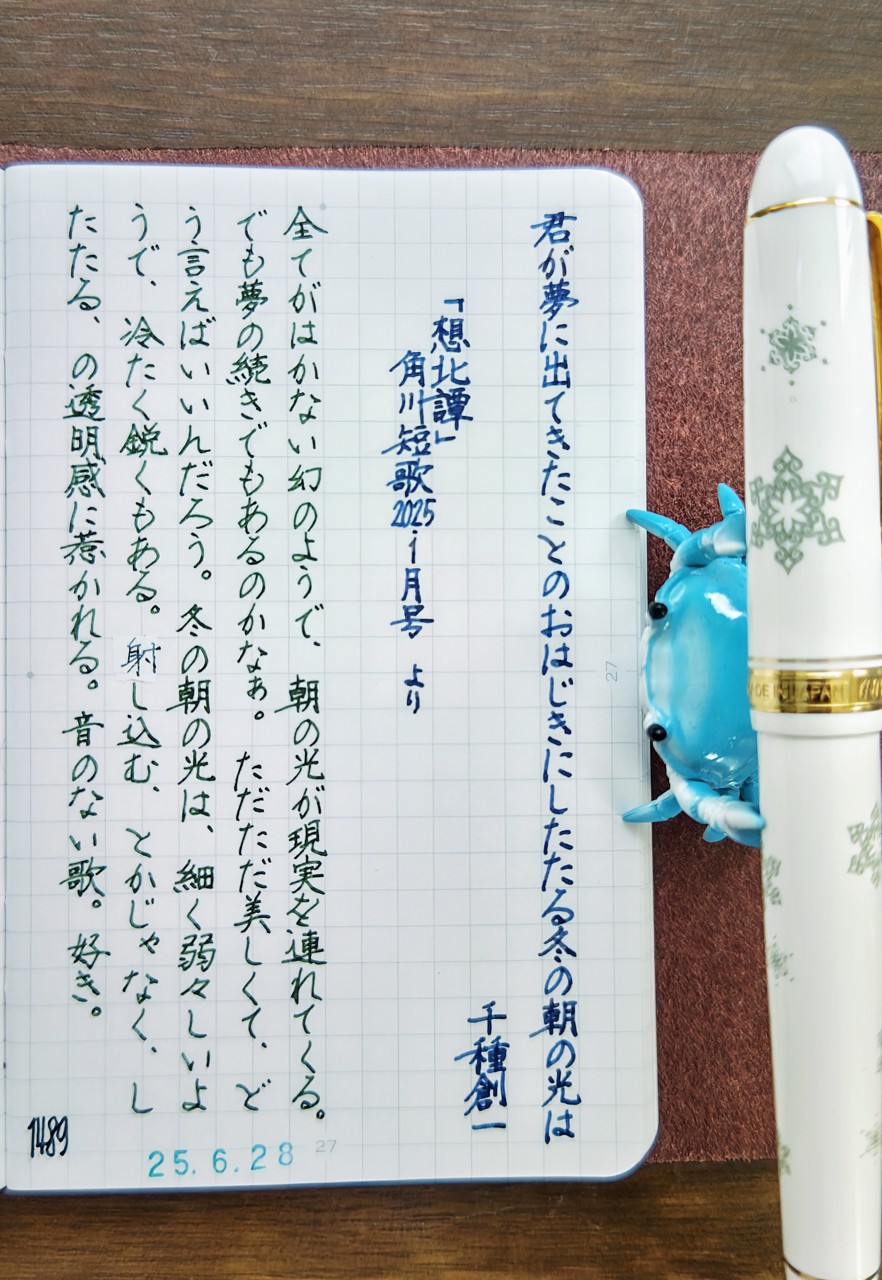 君が夢に出てきたことのおはじきにしたたる冬の朝の光は
千種創一
「想北譚」
角川短歌2025.1月号 より
全てがはかない幻のようで、朝の光が現実を連れてくる。
でも夢の続きでもあるのかなぁ。ただただ美しくて、ど
う言えばいいんだろう。冬の朝の光は、細く弱々しいよ
うで、冷たく鋭くもある。射し込む、とかじゃなく、し
たたる、の透明感に惹かれる。音のない歌。好き。
1489
25.6.28
27
27